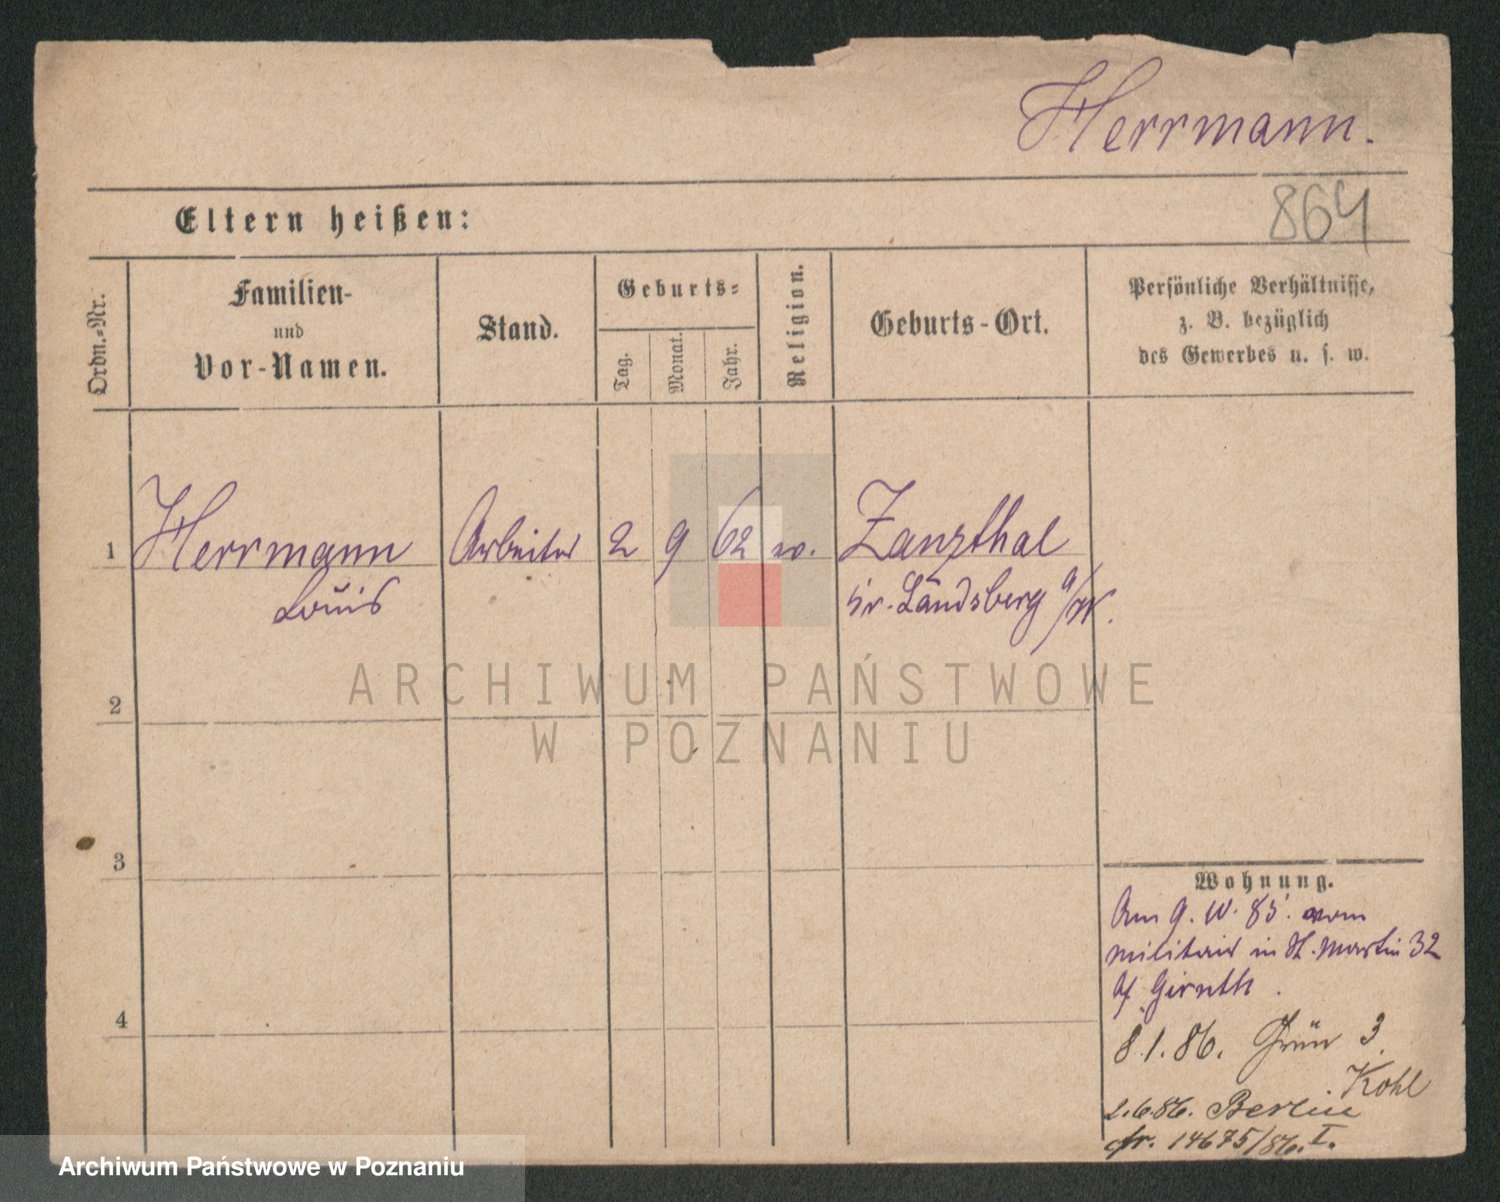 Herrmann.
864
Eltern heißen:
Ordn.-Nr.
Familien-
und
Vor-Namen.
Stand.
Geburts-
Tag.
Monat.
Jahr.
Religion.
Geburts-Ort.
Persönliche Verhältnisse,
z. B. bezüglich
des Gewerbes u. s. w.
1 Herrmann Arbeiter 2 9 62 Zanzthal
Louis Landsberg a/W.
2
ARCHIWUM PAŃSTWOWE
W POZNANIU
3
4
Wohnung.
Am 9. 85. vom
Militair in St. Martin 32
Girnth.
8.1.86. Grün 3
Kohl
2.6.86. Berlin
14675/86. I.
Archiwum Państwowe w Poznaniu